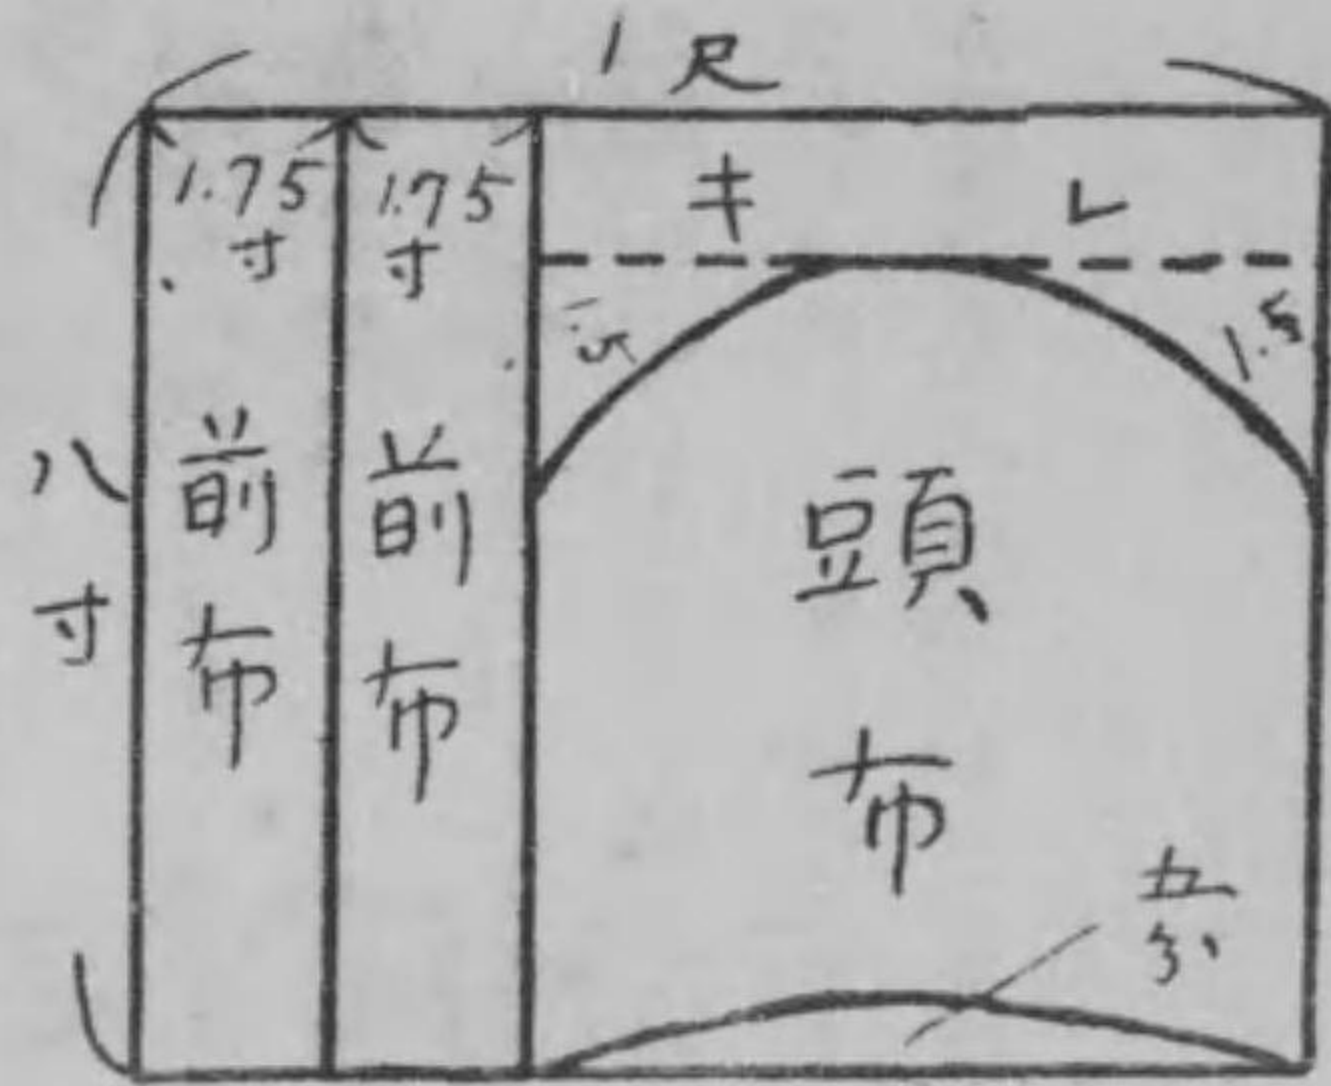 1尺
1.75
寸
1.75
寸
キレ
1.5
1.5
八寸
前布
前布
頭布
五分